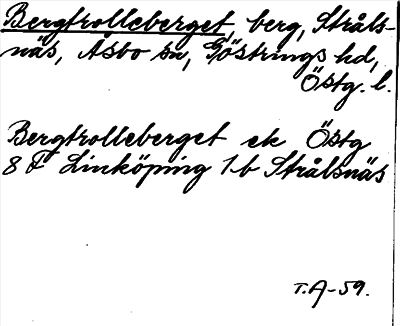 Bergtrolleberget, berg, Stråls-
näs, Åsbo sn, Göstrings hd,
Östg. l.
Bergtrolleberget ek Östg
8 F Linköping 1b Strålsnäs
T.A-59.